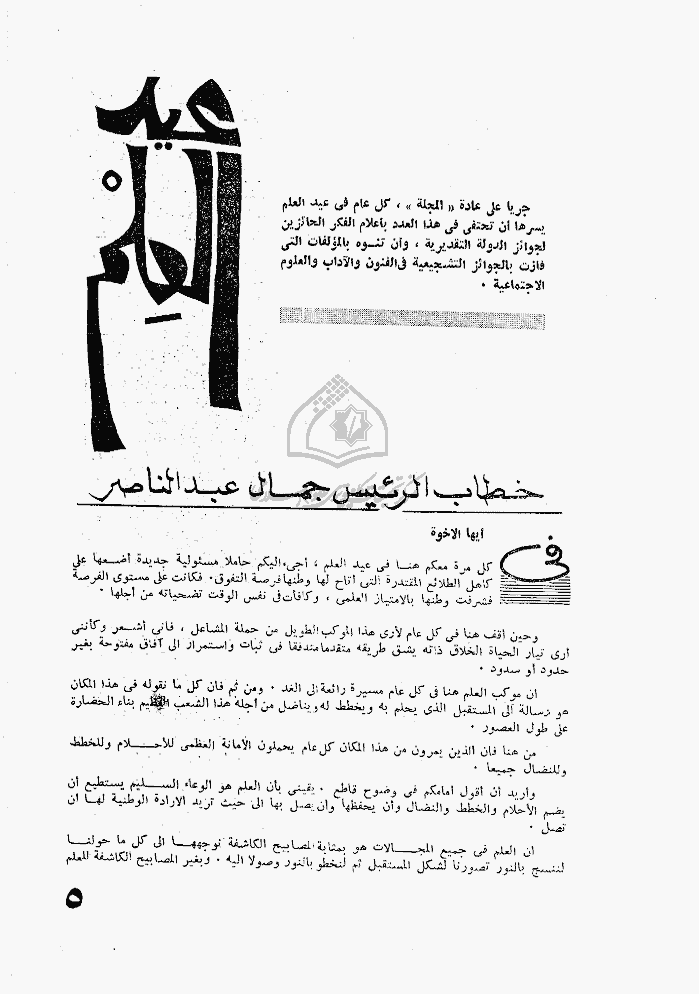 عيد
العلم
جريا على عادة « المجلة » ، كل عام فى عيد العلم
يسرها أن تحتفى فى هذا العدد بأعلام الفكر الحائزين
لجوائز الدولة التقديرية ، وأن تنـوه بالمؤلفات التى
فازت بالجوائز التشجيعية فى الفنون والآداب والعلوم
الاجتماعية .
خطاب الرئيس جمال عبد الناصر
أيها الاخوة
فى كل مرة معكم هنـا فى عيد العلم ، أجىء اليكم حاملا مسئولية جديدة أضـعها على
كاهل الطلائع المقتدرة التى أتاح لها وطنها فرصة التفوق . فكانت على مستوى الفرصة
فشرفت وطنها بالامتياز العلمى ، وكافأت فى نفس الوقت تضحياته من أجلها .
وحين أقف هنا فى كل عام لأرى هذا الموكب الطويل من حملة المشاعل ، فانى أشـعر وكأننى
أرى تيار الحياة الخلاق ذاته يشق طريقه متقدما متدفقا فى ثبات واستمرار الى آفاق مفتوحة بغير
حدود أو سدود .
ان موكب العلم هنا فى كل عام مسيرة رائعة الى الغد . ومن ثم فان كل ما نقوله فى هذا المكان
هو رسالة الى المستقبل الذى يحلم به ويخطط له ويناضل من أجله هذا الشعب العظيم بناء الحضارة
على طول العصور .
من هنا فان الذين يمرون من هذا المكان كل عام يحملون الأمانة العظمى للأحـــلام وللخطط
وللنضال جميعا .
وأريد أن أقول أمامكم فى وضوح قاطع . يقينى بأن العلم هو الوعاء الســـليم يستطيع أن
يضم الأحلام والخطط والنضال وأن يحفظها وأن يصل بها الى حيث تريد الارادة الوطنية لهـا أن
تصل .
ان العلم فى جميع المجـــالات هو بمثابة المصابيح الكاشفة نوجههـــا الى كل ما حولنـــا
لننسج بالنور تصورنا لشكل المستقبل ثم لنخطو بالنور وصولا اليه . وبغير المصابيح الكاشفة للعلم
٥